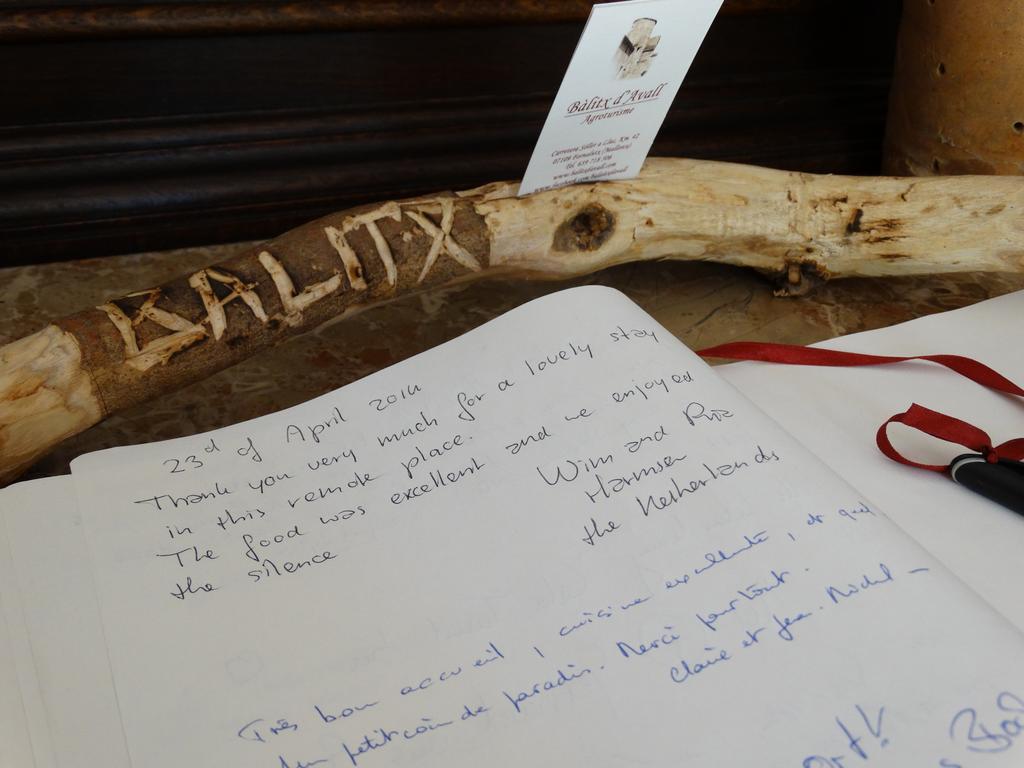 Bàlitx d'Avall
Agroturisme
Carretera Sóller a Lluc, Km. 42
07109 Fornalutx (Mallorca)
Tel. 639 718 506
www.balitxdavall.com
BALITX
23rd of April 2014
Thank you very much for a lovely stay
in this remote place.
The food was excellent and we enjoyed
the silence
Wim and Ria
Harmsen
the Netherlands
Très bon accueil, cuisine excellente, et quel
petit coin de paradis. Merci pour tout.
Claire et Jean-Michel